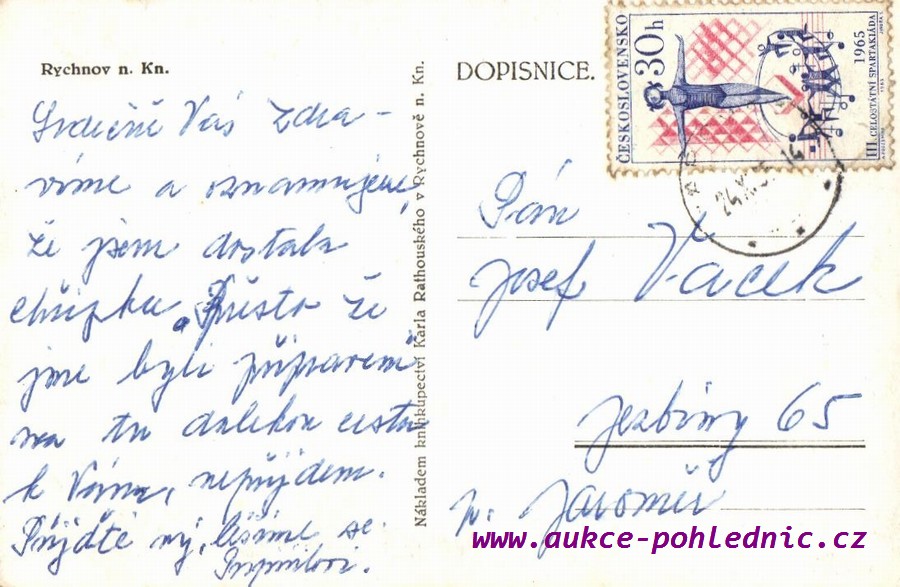 Rychnov n. Kn.
Srdečně Vás zdra-
víme a oznamujeme,
že jsem dostala
chřipku. Přesto že
jsme byli připraveni
na tu dalekou cestu
k Vám, nepřijdem.
Přijďte vy, těšíme se.
Nákladem knihkupectví Karla Rathouského v Rychnově n. Kn.
DOPISNICE.
ČESKOSLOVENSKO
30h
1965
III. CELOSTÁTNÍ SPARTAKIÁDA
Pán
Josef Vacek
Jezbiny 65
p. Jaroměř
www.aukce-pohlednic.cz